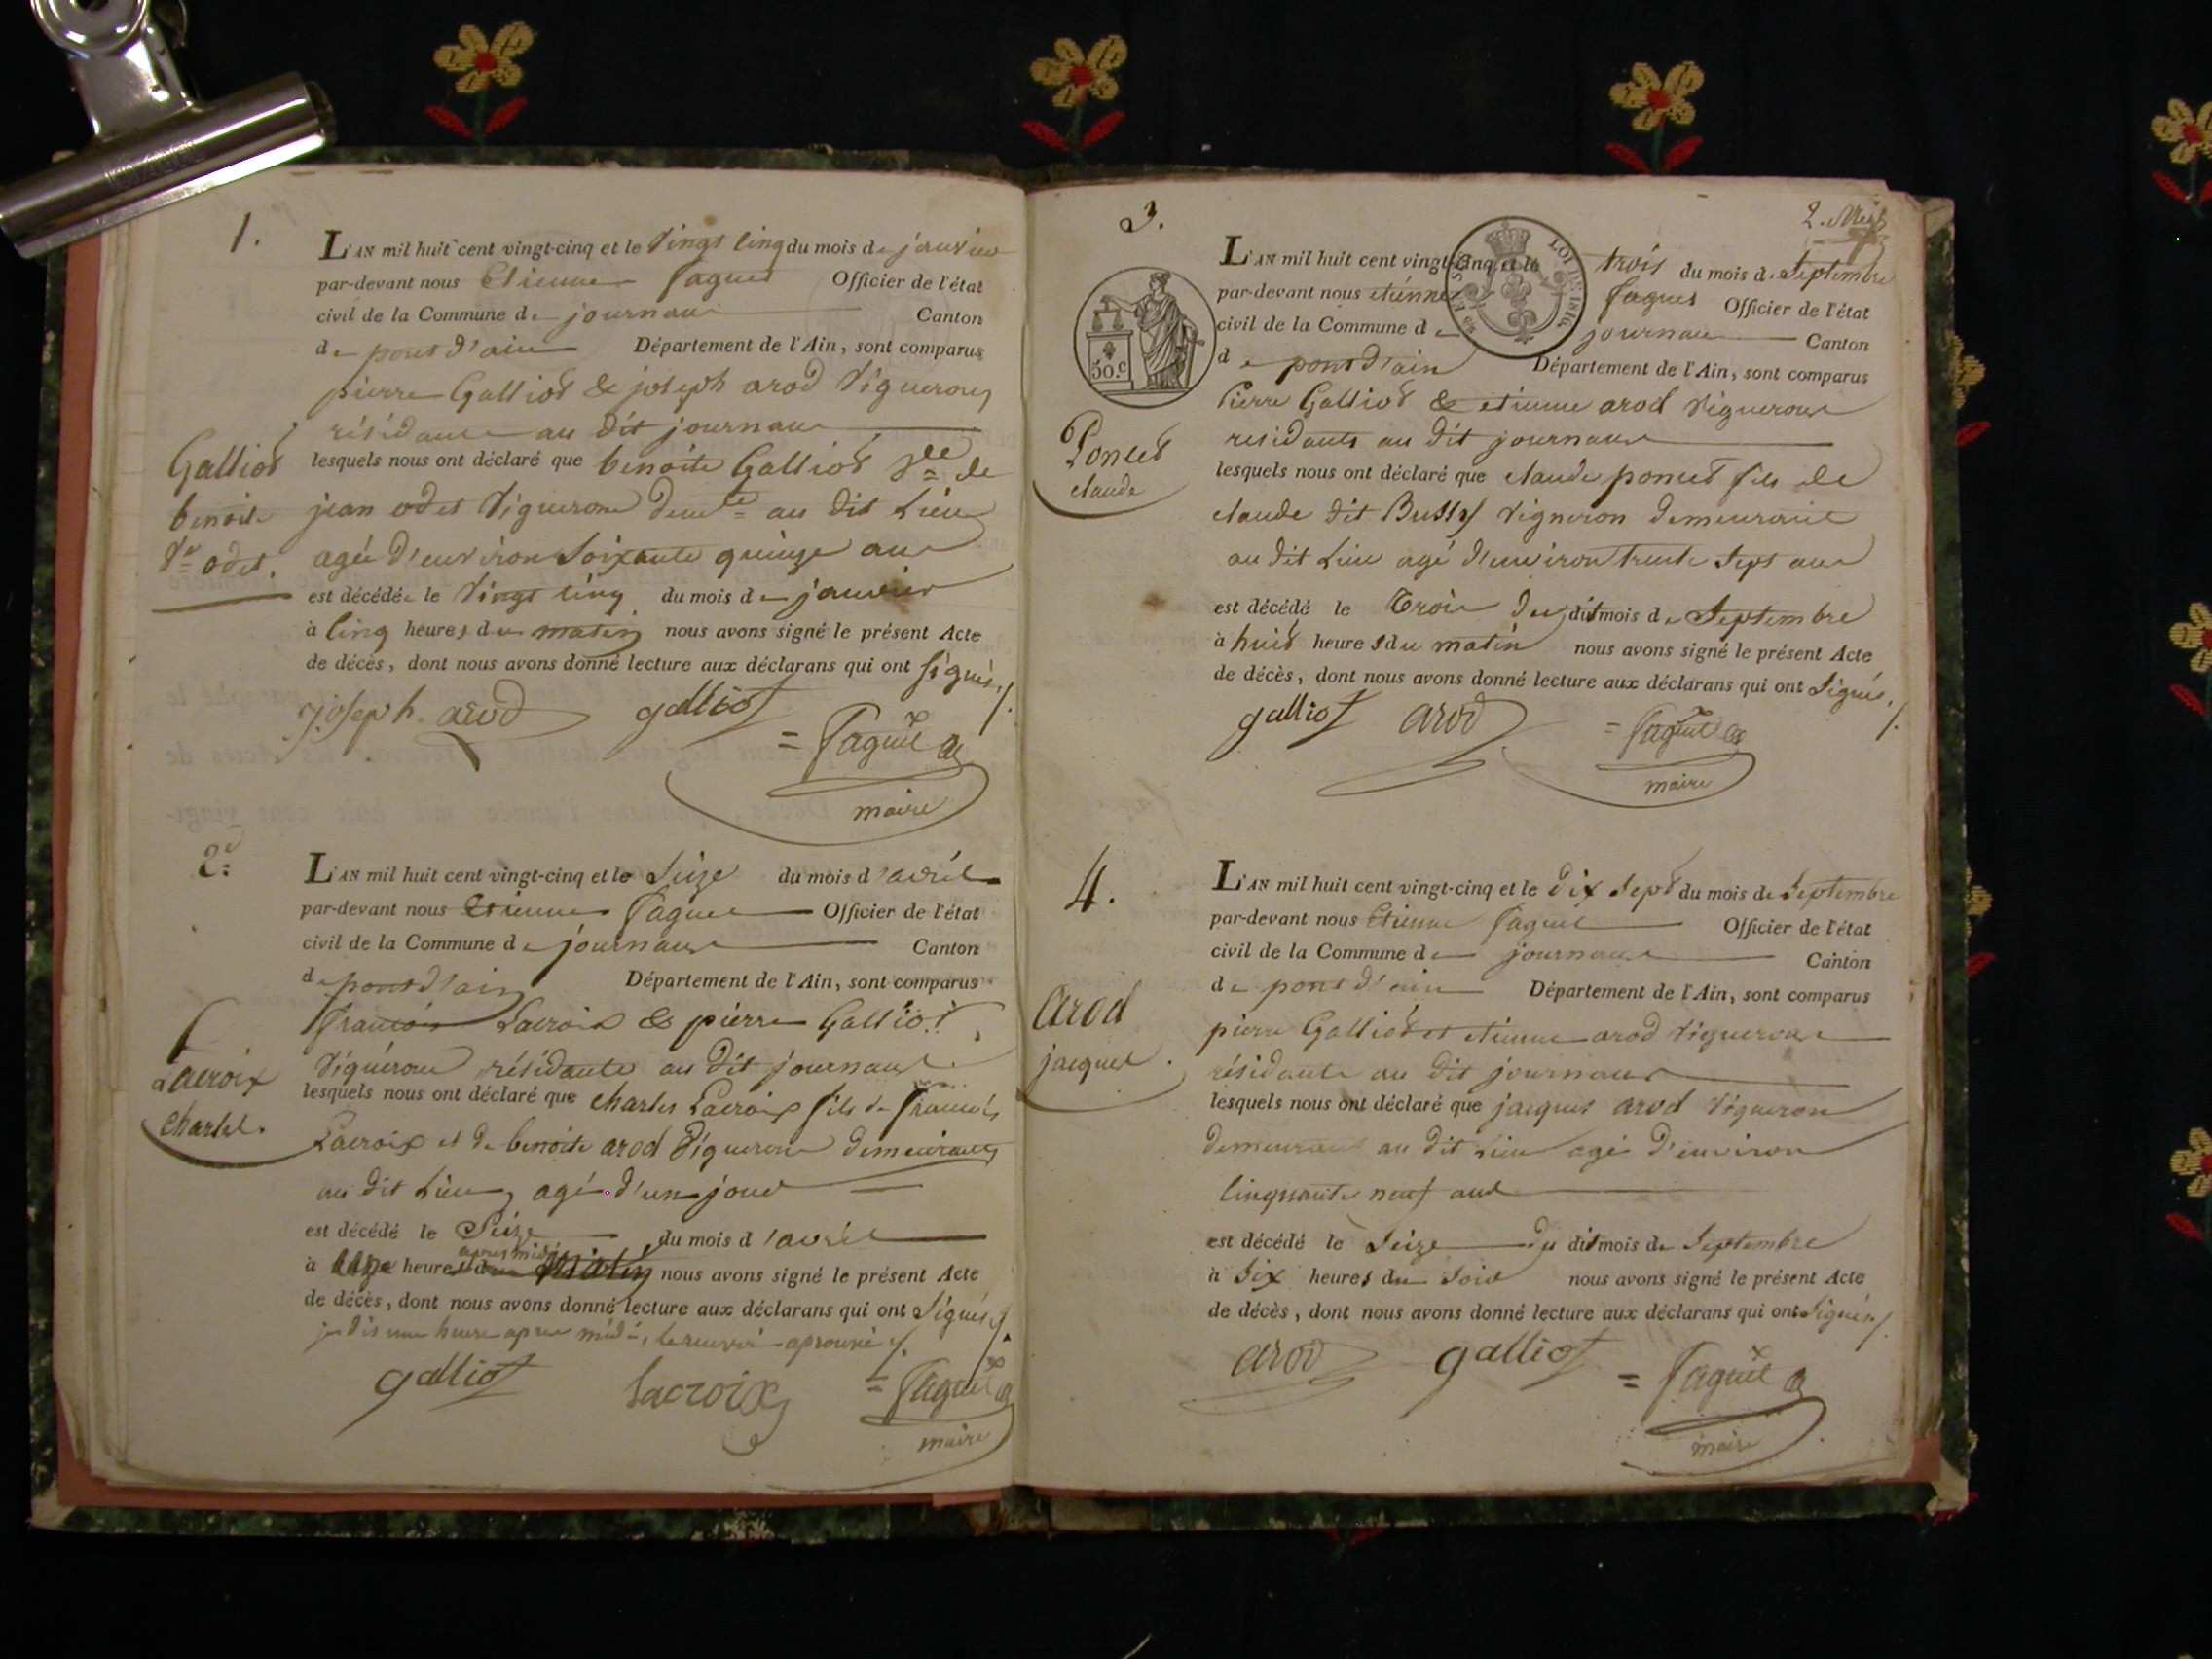 1.
L'AN mil huit cent vingt-cinq et le Vingt Cinq du mois de janvier
par-devant nous Etienne faguet Officier de l'état
civil de la Commune de journans Canton
de pont d'ain Département de l'Ain, sont comparus
pierre Galliot & joseph arod Vignerons
résidants au dit journans
Galliot
benoite
Ve odet.
lesquels nous ont déclaré que benoite Galliot Vve de
jean odet Vigneron demte au dit Lieu
agée d'environ Soixante quinze ans
est décédée le Vingt Cinq du mois de janvier
à Cinq heures du matin nous avons signé le présent Acte
de décès, dont nous avons donné lecture aux déclarans qui ont Signés./.
joseph arod galliot
= faguet
maire
2e
L'AN mil huit cent vingt-cinq et le Seize du mois d'avril
par-devant nous Etienne faguet Officier de l'état
civil de la Commune de journans Canton
de pont d'ain Département de l'Ain, sont comparus
françois Lacroix & pierre Galliot
Vignerons résidants au dit journans
Lacroix
Charles.
lesquels nous ont déclaré que charles Lacroix fils de françois
Lacroix et de benoite arod Vignerons demeurants
au dit Lieu, agé d'un jour
est décédé le Seize du mois d'avril
à une heure après midi nous avons signé le présent Acte
de décès, dont nous avons donné lecture aux déclarans qui ont Signés ./.
je dis une heure apres midi, le renvoi aprouvé ./.
galliot lacroix = faguet
maire
2. 
3.
L'AN mil huit cent vingt-cinq et le trois du mois de Septembre
par-devant nous etiénne faguet Officier de l'état
civil de la Commune de journans Canton
de pont d'ain Département de l'Ain, sont comparus
LOI DE 1816.
50 c.
Pierre Galliot & etienne arod Vignerons
residants au dit journans
Poncet
claude
lesquels nous ont déclaré que claude poncet fils de
claude dit Bussy Vigneron demeurant
au dit Lieu agé d'environ trente Sept ans
est décédé le Trois du dit mois de Septembre
à huit heures du matin nous avons signé le présent Acte
de décès, dont nous avons donné lecture aux déclarans qui ont Signés./.
galliot arod = faguet
maire
4.
L'AN mil huit cent vingt-cinq et le dix Sept du mois de Septembre
par-devant nous Etienne faguet Officier de l'état
civil de la Commune de journans Canton
de pont d'ain Département de l'Ain, sont comparus
pierre Galliot et etienne arod Vignerons
résidants au dit journans
Arod
jacques.
lesquels nous ont déclaré que jacques arod Vigneron
demeurant au dit Lieu agé d'environ
Cinquante neuf ans
est décédé le Seize du dit mois de Septembre
à Six heures du Soir nous avons signé le présent Acte
de décès, dont nous avons donné lecture aux déclarans qui ont Signés./.
arod galliot = faguet
maire